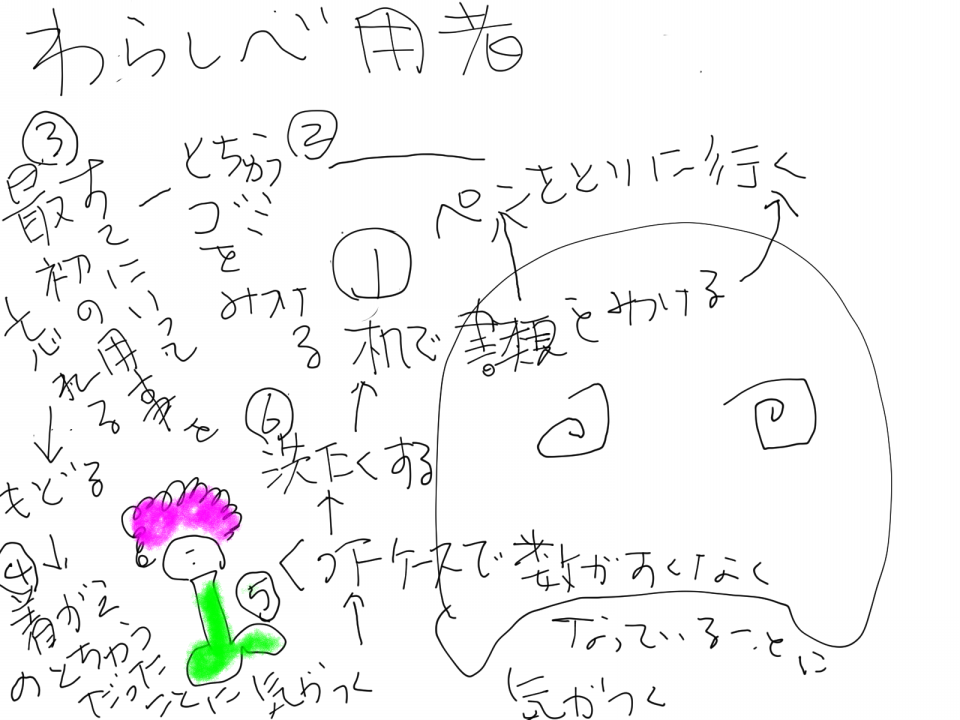 わらしべ用者
①
机で書類をみつける
ペンをとりに行く
②
とちゅう
ゴミ
を
みつけ
る
③
すてにいって
最初の用事を
忘れる
もどる
④
着がえ
のとちゅう
だった
ことに気がつく
⑤
くつ下ケースで数がすくなく
なっていることに
気がつく
⑥
洗たくする